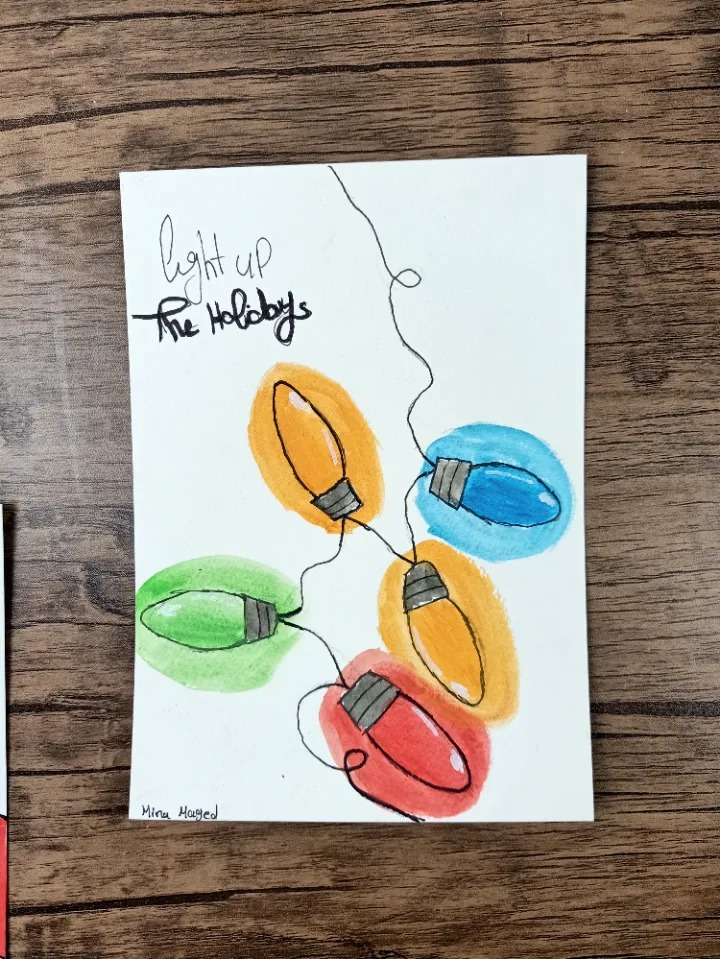 light up
The Holidays
Mina Maged